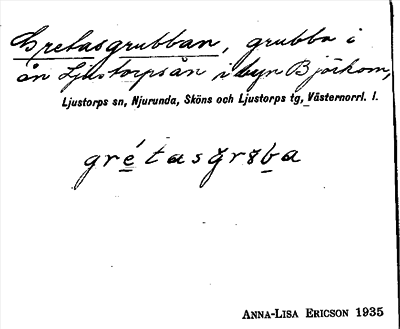 Gretasgrubban, grubba i
ån Ljustorpsån i byn Björkom,
Ljustorps sn, Njurunda, Sköns och Ljustorps tg, Västernorrl. l.
grétasgrȣba
ANNA-LISA ERICSON 1935